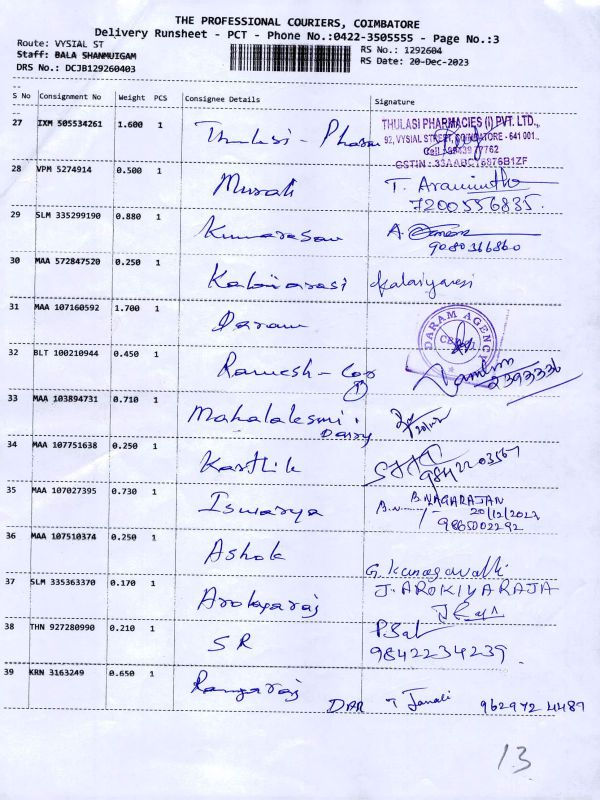 THE PROFESSIONAL COURIERS, COIMBATORE
Delivery Runsheet - PCT - Phone No.:0422-3505555 - Page No.:3
Route: VYSIAL ST
RS No.: 1292604
Staff: BALA SHANMUIGAM
RS Date: 20-Dec-2023
DRS No.: DCJB129260403
S No Consignment No Weight PCS Consignee Details Signature
27 IXM 505534261 1.600 1 Thulasi - Pharma
THULASI PHARMACIES (I) PVT. LTD.,
92, VYSIAL STREET, COIMBATORE - 641 001.
28 VPM 5274914 0.500 1 Murali T. Aravinth
7200556835.
29 SLM 335299190 0.880 1 Kumaresan A.
9080366860
30 MAA 572847520 0.250 1 Kalaiarasi Kalaiyarasi
31 MAA 107160592 1.700 1 Daram DARAM AGENCY
32 BLT 100210944 0.450 1 Ramesh -
2393336
33 MAA 103894731 0.710 1 Mahalakshmi
Dairy
34 MAA 107751638 0.250 1 Karthik
9842203567
35 MAA 107027395 0.730 1 Iswarya B. NAGARAJAN
20/12/2023
9865002292
36 MAA 107510374 0.250 1 Ashok G. Kanagavalli
37 SLM 335363370 0.170 1 Arokyaraj J. AROKIYARAJA
38 THN 927280990 0.210 1 SR P.Bal
9842234239.
39 KRN 3163249 0.650 1 Rangaraj DAR T Janali 962972 4487
13